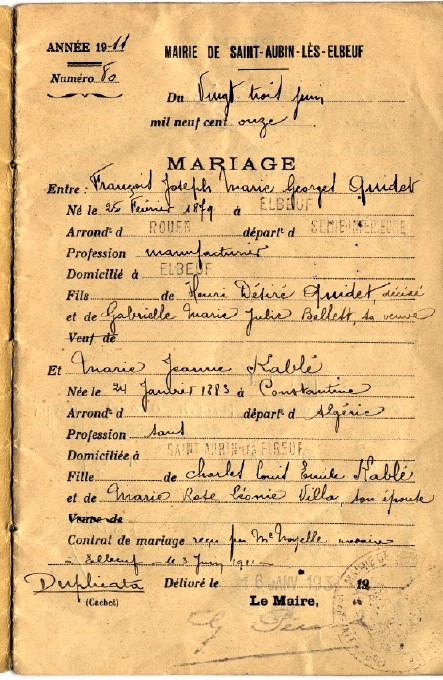 ANNÉE 1911
MAIRIE DE SAINT-AUBIN-LÈS-ELBEUF
Numéro 80
Du Vingt trois juin
mil neuf cent onze
MARIAGE
Entre : François Joseph Marie Georges Quidet
Né le 25 Février 1879 à ELBEUF
Arrond.t d ROUEN départ.t d SEINE-INFÉRIEURE
Profession manufacturier
Domicilié à ELBEUF
Fils de Henri Désiré Quidet, décédé
et de Gabrielle Marie Julie Bellest, sa veuve
Veuf de
Et Marie Jeanne Kablé
Née le 24 Janvier 1883 à Constantine
Arrond.t d départ.t d Algérie
Profession sans
Domiciliée à SAINT-AUBIN-LES-ELBEUF
Fille de Charles Louis Emile Kablé
et de Marie Rose Léonie Villa, son épouse
Veuve de
Contrat de mariage reçu par Me Noyelle notaire
à Elbeuf le 3 Juin 1911
Duplicata Délivré le 16 JANV 193 19
(Cachet) Le Maire,